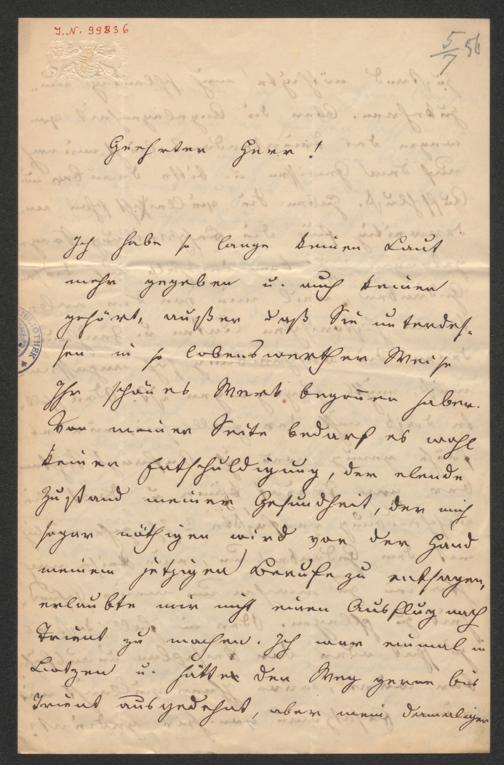 J. N. 99836
5/7 56
Geehrter Herr!
Ich habe so lange keinen Laut
mehr gegeben u. auch keinen
gehört, außer daß Sie unterdes-
sen in so lobenswerther Weise
Ihr schönes Werk begonnen haben.
Von meiner Seite bedarf es wohl
keiner Entschuldigung, der elende
Zustand meiner Gesundheit, der mich
sogar nöthigen wird vor der Hand
meinem jetzigen Berufe zu entsagen,
erlaubte mir nicht einen Ausflug nach
Trient zu machen. Ich war einmal in
Botzen u. hätte den Weg gerne bis
Trient ausgedehnt, aber mein damaliger